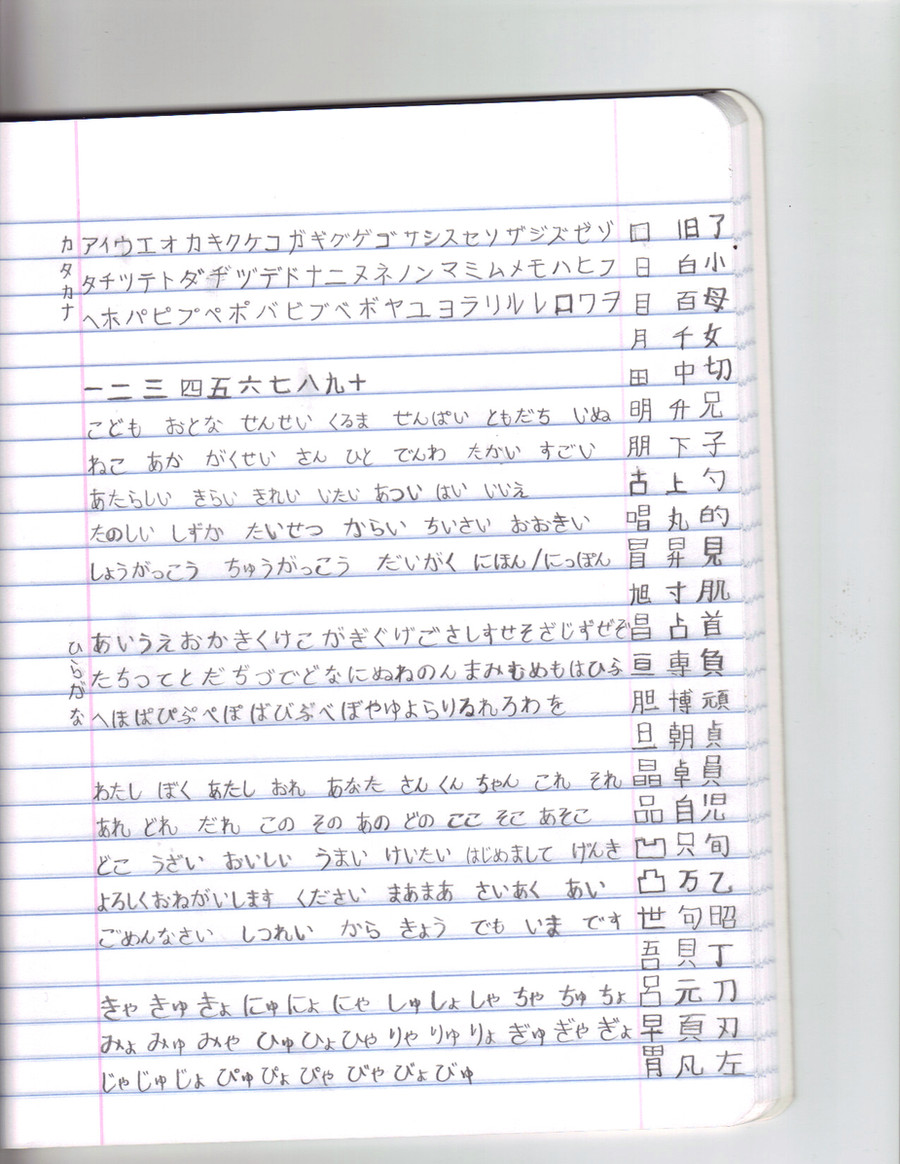 カタカナ
アイウエオカキクケコガギグゲゴサシスセソザジズゼゾ 口 旧 了
タチツテトダヂヅデドナニヌネノンマミムメモハヒフ 日 白 小
ヘホパピプペポバビブベボヤユヨラリルレロワヲ 目 百 母
月 千 女
一二三四五六七八九十 田 中 切
こども おとな せんせい くるま せんぱい ともだち いぬ 明 升 兄
ねこ あか がくせい さん ひと でんわ たかい すごい 朋 下 子
あたらしい きらい きれい いたい あつい はい いいえ 古 上 勺
たのしい しずか たいせつ からい ちいさい おおきい 唱 丸 的
しょうがっこう ちゅうがっこう だいがく にほん/にっぽん 冒 昇 見
旭 寸 肌
ひらがな
あいうえおかきくけこがぎぐげごさしすせそざじずぜぞ 昌 占 首
たちつてとだぢづでどなにぬねのんまみむめもはひふ 亘 専 負
へほぱぴぷぺぽばびぶべぼやゆよらりるれろわを 胆 博 頑
旦 朝 貞
わたし ぼく あたし おれ あなた さん くん ちゃん これ それ 晶 卓 員
あれ どれ だれ この その あの どの ここ そこ あそこ 品 自 児
どこ うざい おいしい うまい けいたい はじめまして げんき 凹 只 旬
よろしくおねがいします ください まあまあ さいあく あい 凸 万 乙
ごめんなさい しつれい から きょう でも いま です 世 句 昭
吾 貝 丁
きゃ きゅ きょ にゅ にょ にゃ しゅ しょ しゃ ちゃ ちゅ ちょ 呂 元 刀
みょ みゅ みゃ ひゅ ひょ ひゃ りゃ りゅ りょ ぎゅ ぎゃ ぎょ 早 頁 刃
じゃ じゅ じょ ぴゅ ぴょ ぴゃ びゃ びょ びゅ 胃 凡 左